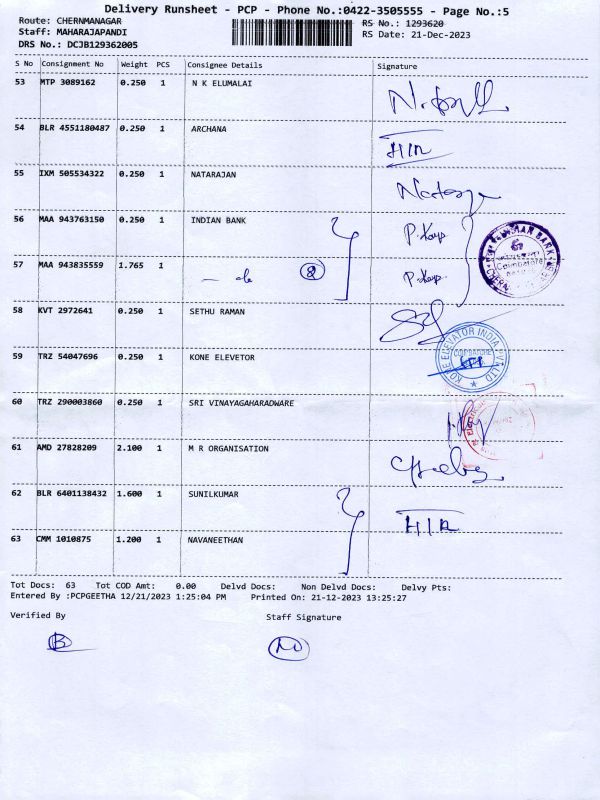 Delivery Runsheet - PCP - Phone No.:0422-3505555 - Page No.:5
Route: CHERNMANAGAR
RS No.: 1293620
Staff: MAHARAJAPANDI
RS Date: 21-Dec-2023
DRS No.: DCJB129362005
S No Consignment No Weight PCS Consignee Details Signature
53 MTP 3089162 0.250 1 N K ELUMALAI
54 BLR 4551180487 0.250 1 ARCHANA
55 IXM 505534322 0.250 1 NATARAJAN
56 MAA 943763150 0.250 1 INDIAN BANK
57 MAA 943835559 1.765 1 — do 2
58 KVT 2972641 0.250 1 SETHU RAMAN
59 TRZ 54047696 0.250 1 KONE ELEVETOR
KONE ELEVATOR INDIA PVT LTD
60 TRZ 290003860 0.250 1 SRI VINAYAGAHARADWARE
61 AMD 27828209 2.100 1 M R ORGANISATION
62 BLR 6401138432 1.600 1 SUNILKUMAR
63 CMM 1010875 1.200 1 NAVANEETHAN
Tot Docs: 63 Tot COD Amt: 0.00 Delvd Docs: Non Delvd Docs: Delvy Pts:
Entered By :PCPGEETHA 12/21/2023 1:25:04 PM Printed On: 21-12-2023 13:25:27
Verified By Staff Signature